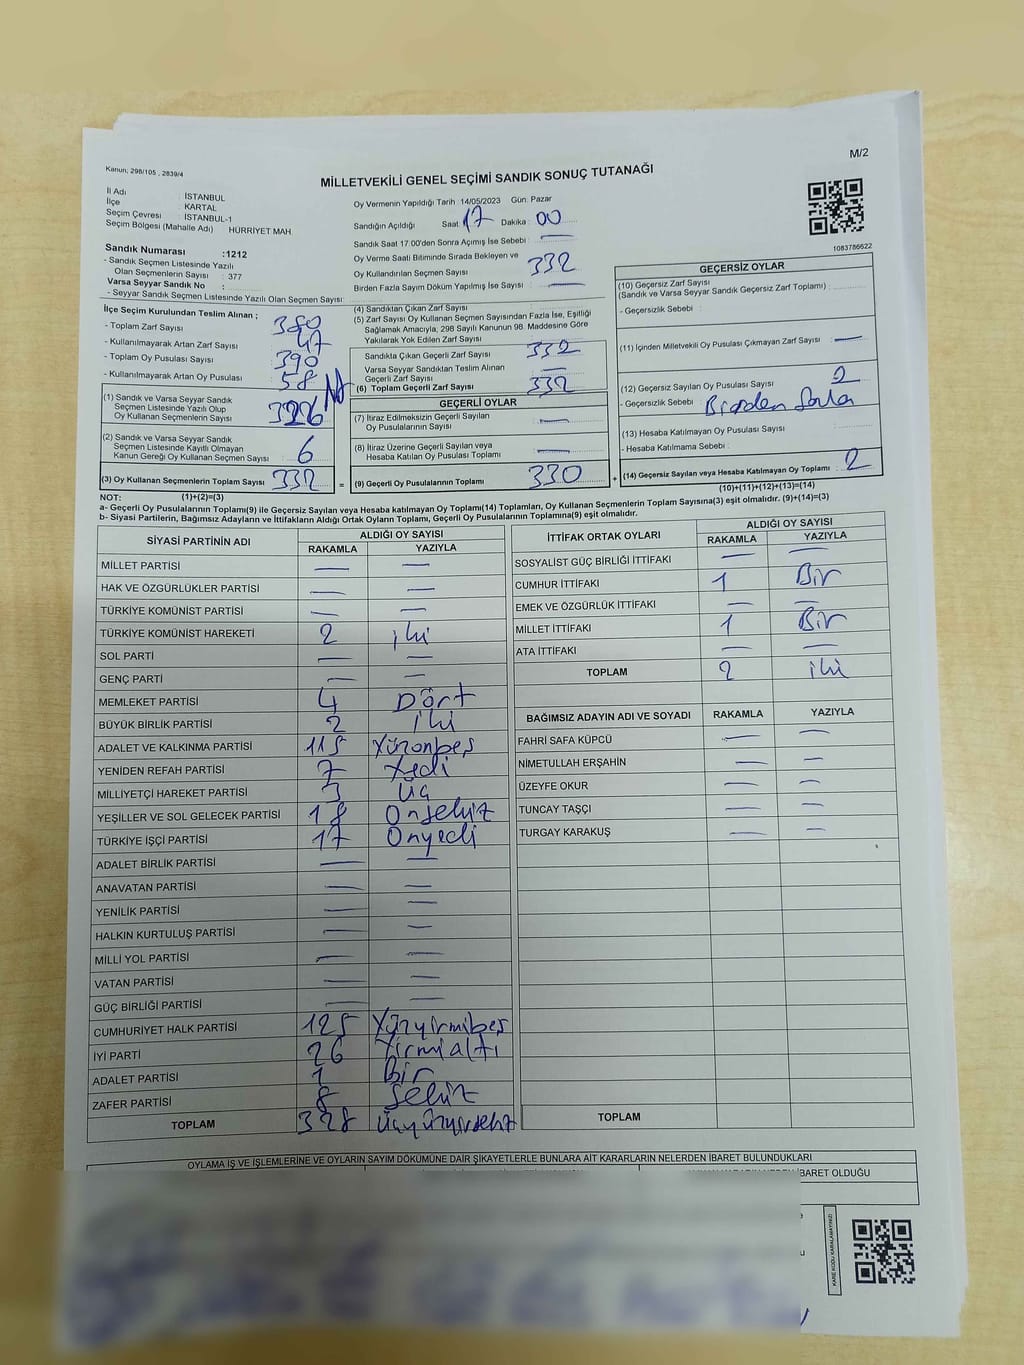 Kanun; 298/105 , 2839/4
M/2
MİLLETVEKİLİ GENEL SEÇİMİ SANDIK SONUÇ TUTANAĞI
İl Adı : İSTANBUL
İlçe : KARTAL
Seçim Çevresi : İSTANBUL-1
Seçim Bölgesi (Mahalle Adı) HÜRRİYET MAH.
Sandık Numarası :1212
- Sandık Seçmen Listesinde Yazılı
Olan Seçmenlerin Sayısı : 377
Varsa Seyyar Sandık No :
- Seyyar Sandık Seçmen Listesinde Yazılı Olan Seçmen Sayısı:
Oy Vermenin Yapıldığı Tarih :14/05/2023 Gün: Pazar
Sandığın Açıldığı Saat : 17 Dakika : 00
Sandık Saat 17.00'den Sonra Açımış İse Sebebi : —
Oy Verme Saati Bitiminde Sırada Bekleyen ve
Oy Kullandırılan Seçmen Sayısı : 332
Birden Fazla Sayım Döküm Yapılmış İse Sayısı : —
1083786622
İlçe Seçim Kurulundan Teslim Alınan ;
- Toplam Zarf Sayısı : 380
- Kullanılmayarak Artan Zarf Sayısı : 47
- Toplam Oy Pusulası Sayısı : 390
- Kullanılmayarak Artan Oy Pusulası : 58
(1) Sandık ve Varsa Seyyar Sandık
Seçmen Listesinde Yazılı Olup
Oy Kullanan Seçmenlerin Sayısı : 326
(2) Sandık ve Varsa Seyyar Sandık
Seçmen Listesinde Kayıtlı Olmayan
Kanun Gereği Oy Kullanan Seçmen Sayısı : 6
(3) Oy Kullanan Seçmenlerin Toplam Sayısı : 332
(4) Sandıktan Çıkan Zarf Sayısı
(5) Zarf Sayısı Oy Kullanan Seçmen Sayısından Fazla İse, Eşitliği
Sağlamak Amacıyla, 298 Sayılı Kanunun 98. Maddesine Göre
Yakılarak Yok Edilen Zarf Sayısı
Sandıkta Çıkan Geçerli Zarf Sayısı : 332
Varsa Seyyar Sandıktan Teslim Alınan
Geçerli Zarf Sayısı : —
(6) Toplam Geçerli Zarf Sayısı : 332
GEÇERLİ OYLAR
(7) İtiraz Edilmeksizin Geçerli Sayılan
Oy Pusulalarının Sayısı : —
(8) İtiraz Üzerine Geçerli Sayılan veya
Hesaba Katılan Oy Pusulası Toplamı : —
= (9) Geçerli Oy Pusulalarının Toplamı : 330
GEÇERSİZ OYLAR
(10) Geçersiz Zarf Sayısı
(Sandık ve Varsa Seyyar Sandık Geçersiz Zarf Toplamı) :
- Geçersizlik Sebebi :
(11) İçinden Milletvekili Oy Pusulası Çıkmayan Zarf Sayısı : —
(12) Geçersiz Sayılan Oy Pusulası Sayısı : 2
- Geçersizlik Sebebi : Birden fazla
(13) Hesaba Katılmayan Oy Pusulası Sayısı :
- Hesaba Katılmama Sebebi :
+ (14) Geçersiz Sayılan veya Hesaba Katılmayan Oy Toplamı : 2
NOT: (1)+(2)=(3) (10)+(11)+(12)+(13)=(14)
a- Geçerli Oy Pusulalarının Toplamı(9) ile Geçersiz Sayılan veya Hesaba katılmayan Oy Toplamı(14) Toplamları, Oy Kullanan Seçmenlerin Toplam Sayısına(3) eşit olmalıdır. (9)+(14)=(3)
b- Siyasi Partilerin, Bağımsız Adayların ve İttifakların Aldığı Ortak Oyların Toplamı, Geçerli Oy Pusulalarının Toplamına(9) eşit olmalıdır.
SİYASİ PARTİNİN ADI ALDIĞI OY SAYISI
RAKAMLA YAZIYLA
MİLLET PARTİSİ — —
HAK VE ÖZGÜRLÜKLER PARTİSİ — —
TÜRKİYE KOMÜNİST PARTİSİ — —
TÜRKİYE KOMÜNİST HAREKETİ 2 iki
SOL PARTİ — —
GENÇ PARTİ — —
MEMLEKET PARTİSİ 4 Dört
BÜYÜK BİRLİK PARTİSİ 2 iki
ADALET VE KALKINMA PARTİSİ 115 Yüzonbeş
YENİDEN REFAH PARTİSİ 7 Yedi
MİLLİYETÇİ HAREKET PARTİSİ 3 Üç
YEŞİLLER VE SOL GELECEK PARTİSİ 18 Onsekiz
TÜRKİYE İŞÇİ PARTİSİ 17 Onyedi
ADALET BİRLİK PARTİSİ — —
ANAVATAN PARTİSİ — —
YENİLİK PARTİSİ — —
HALKIN KURTULUŞ PARTİSİ — —
MİLLİ YOL PARTİSİ — —
VATAN PARTİSİ — —
GÜÇ BİRLİĞİ PARTİSİ — —
CUMHURİYET HALK PARTİSİ 125 Yüzyirmibeş
İYİ PARTİ 26 Yirmialtı
ADALET PARTİSİ 1 Bir
ZAFER PARTİSİ 8 Sekiz
TOPLAM 328
İTTİFAK ORTAK OYLARI ALDIĞI OY SAYISI
RAKAMLA YAZIYLA
SOSYALİST GÜÇ BİRLİĞİ İTTİFAKI — —
CUMHUR İTTİFAKI 1 Bir
EMEK VE ÖZGÜRLÜK İTTİFAKI — —
MİLLET İTTİFAKI 1 Bir
ATA İTTİFAKI — —
TOPLAM 2 iki
BAĞIMSIZ ADAYIN ADI VE SOYADI RAKAMLA YAZIYLA
FAHRİ SAFA KÜPCÜ — —
NİMETULLAH ERŞAHİN — —
ÜZEYFE OKUR — —
TUNCAY TAŞÇI — —
TURGAY KARAKUŞ — —
TOPLAM
OYLAMA İŞ VE İŞLEMLERİNE VE OYLARIN SAYIM DÖKÜMÜNE DAİR ŞİKAYETLERLE BUNLARA AİT KARARLARIN NELERDEN İBARET BULUNDUKLARI
İBARET OLDUĞU
KARE KODU KARALAMAYINIZ!